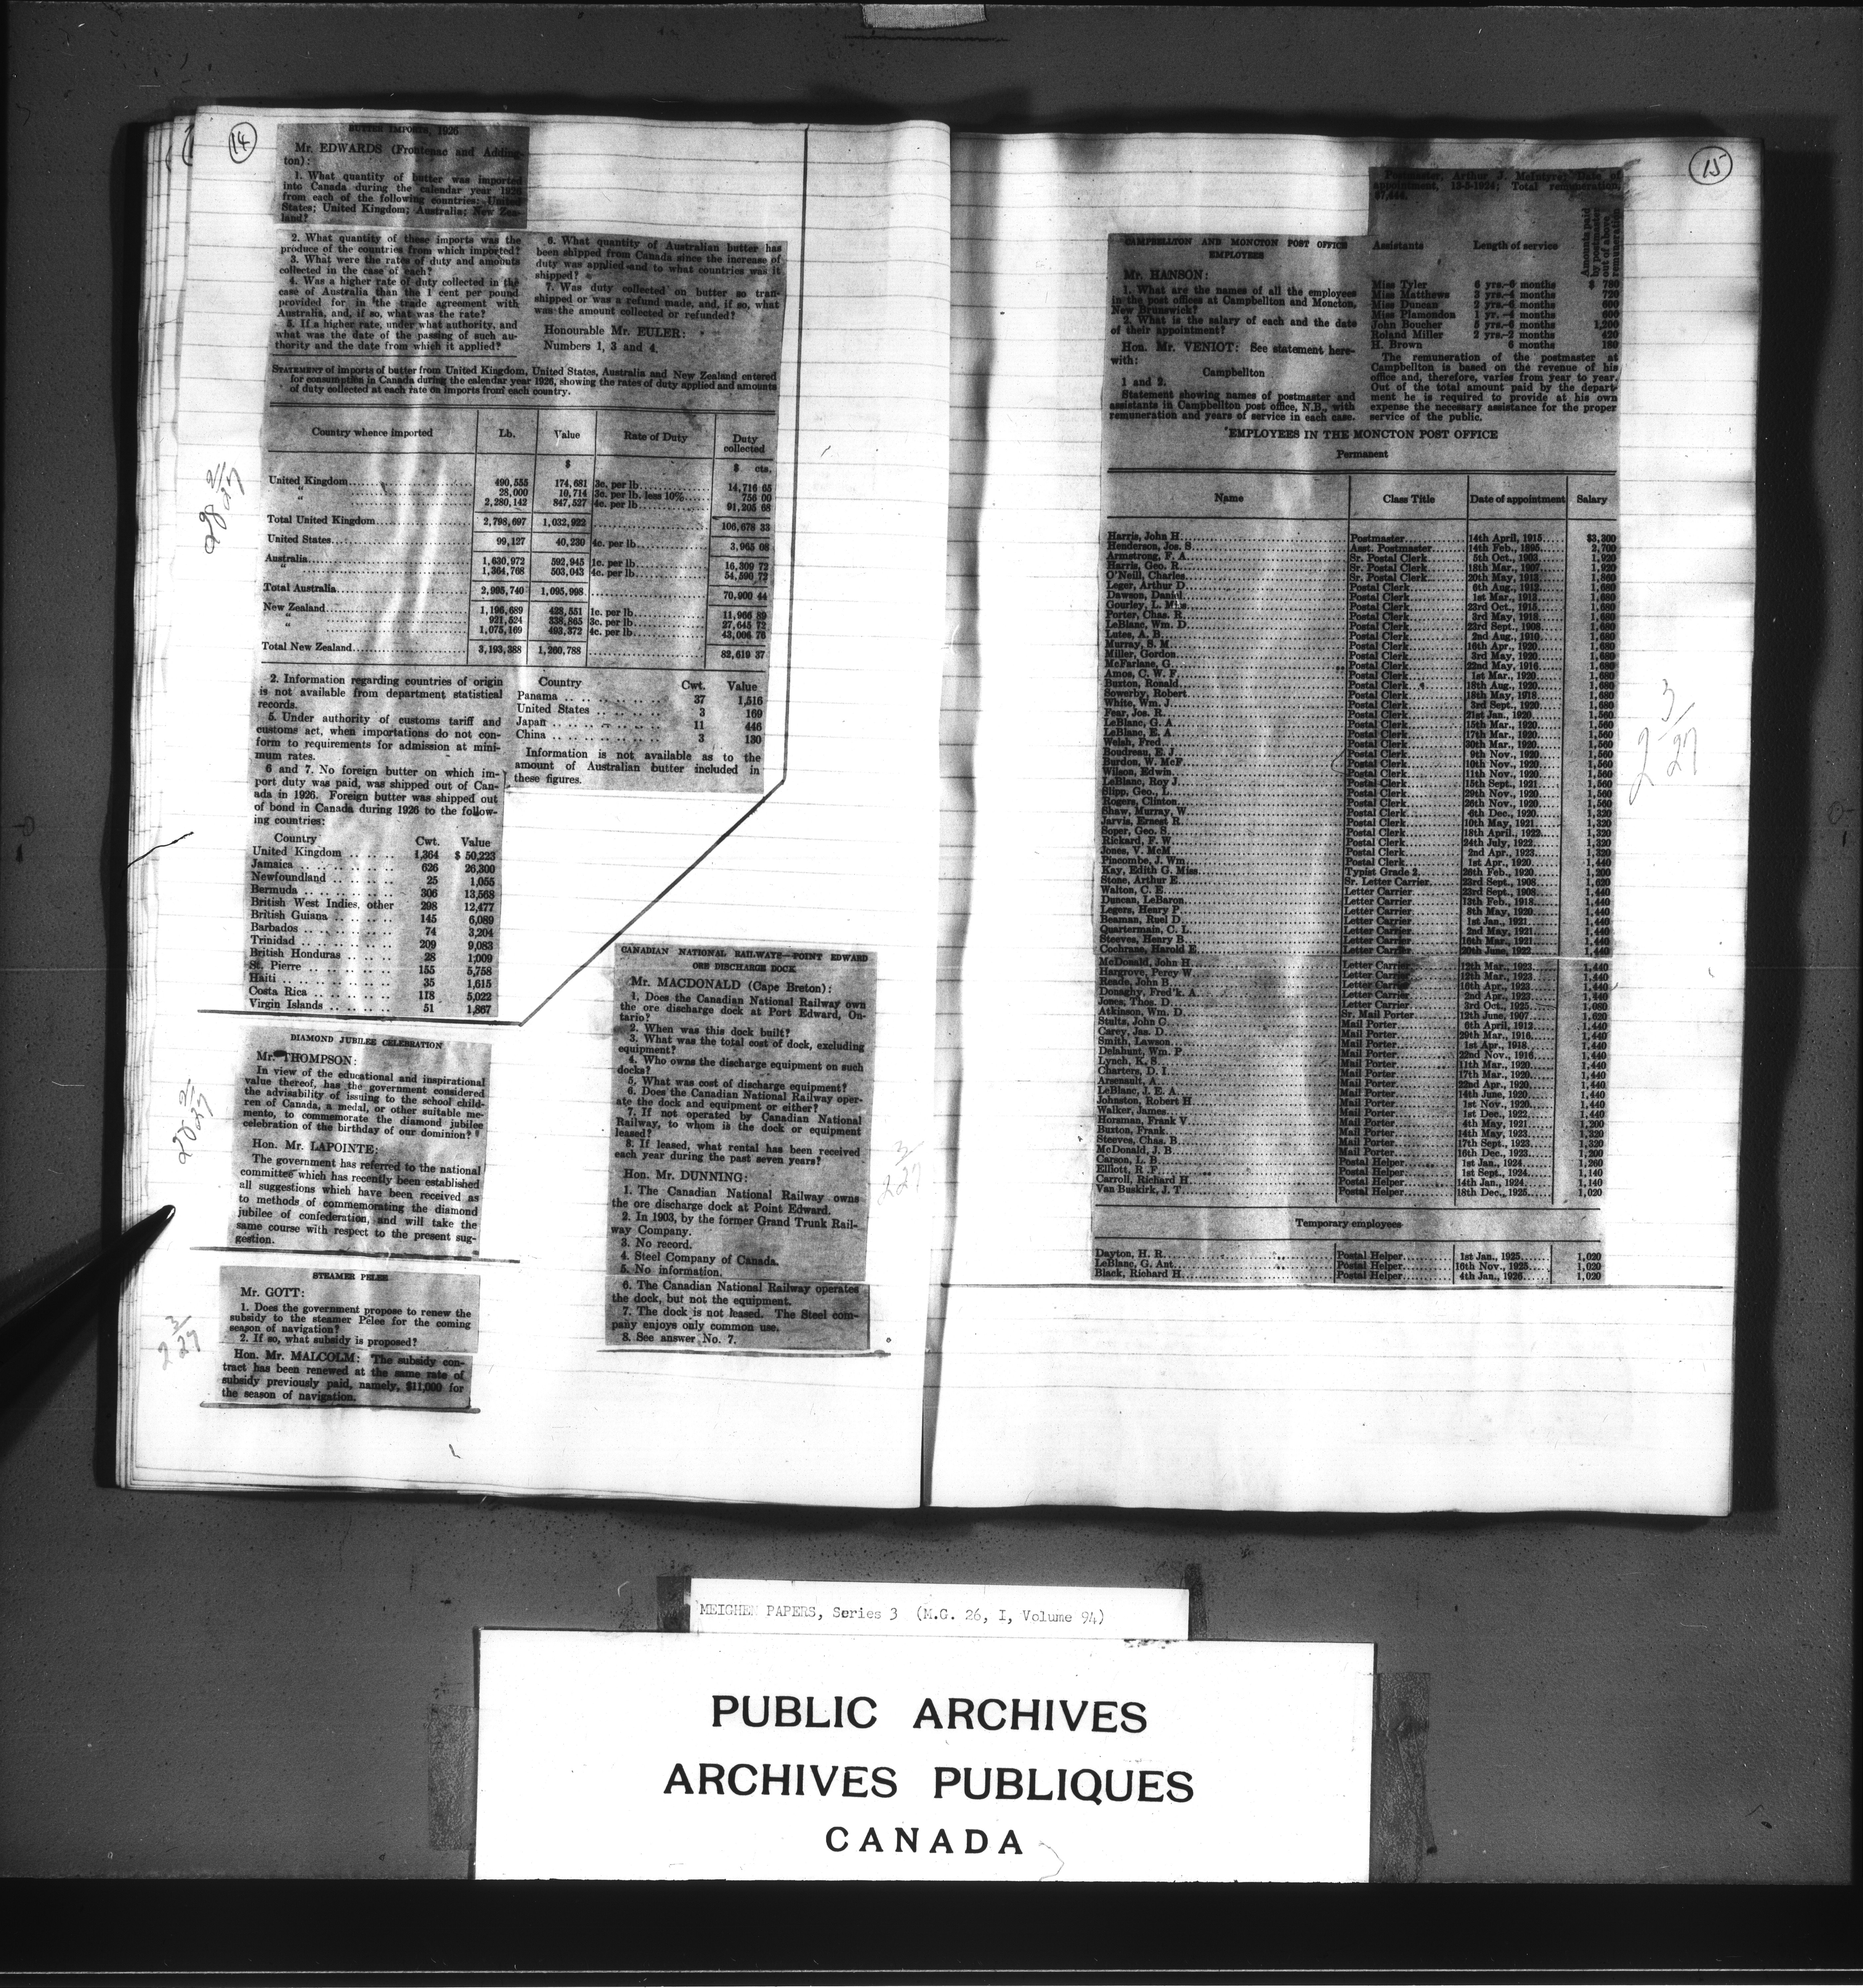 14
BUTTER IMPORTS, 1926
Mr. EDWARDS (Frontenac and Adding-
ton):
1. What quantity of butter was imported
into Canada during the calendar year 1926
from each of the following countries: United
States; United Kingdom; Australia; New Zea-
land?
2. What quantity of these imports was the
produce of the countries from which imported?
3. What were the rates of duty and amounts
collected in the case of each?
4. Was a higher rate of duty collected in the
case of Australia than the 1 cent per pound
provided for in the trade agreement with
Australia, and, if so, what was the rate?
5. If a higher rate, under what authority, and
what was the date of the passing of such au-
thority and the date from which it applied?
6. What quantity of Australian butter has
been shipped from Canada since the increase of
duty was applied and to what countries was it
shipped?
7. Was duty collected on butter so tran-
shipped or was a refund made, and, if so, what
was the amount collected or refunded?
Honourable Mr. EULER:
Numbers 1, 3 and 4.
STATEMENT of imports of butter from United Kingdom, United States, Australia and New Zealand entered
for consumption in Canada during the calendar year 1926, showing the rates of duty applied and amounts
of duty collected at each rate on imports from each country.
Country whence imported Lb. Value Rate of Duty Duty collected
$ $ cts.
United Kingdom 490,555 174,681 3c. per lb. 14,716 65
" 28,000 10,714 3c. per lb. less 10% 756 00
" 2,280,142 847,527 4c. per lb. 91,205 68
Total United Kingdom 2,798,697 1,032,922 106,678 33
United States 99,127 40,230 4c. per lb. 3,965 08
Australia 1,630,972 592,945 1c. per lb. 16,309 72
" 1,364,768 503,043 4c. per lb. 54,590 72
Total Australia 2,995,740 1,095,998 70,900 44
New Zealand 1,196,689 428,551 1c. per lb. 11,966 89
" 921,524 338,865 3c. per lb. 27,645 72
" 1,075,169 493,372 4c. per lb. 43,006 76
Total New Zealand 3,193,388 1,260,788 82,619 37
2. Information regarding countries of origin
is not available from department statistical
records.
5. Under authority of customs tariff and
customs act, when importations do not con-
form to requirements for admission at mini-
mum rates.
6 and 7. No foreign butter on which im-
port duty was paid, was shipped out of Can-
ada in 1926. Foreign butter was shipped out
of bond in Canada during 1926 to the follow-
ing countries:
Country Cwt. Value
United Kingdom 1,364 $ 50,223
Jamaica 626 26,300
Newfoundland 25 1,055
Bermuda 306 13,568
British West Indies, other 298 12,477
British Guiana 145 6,089
Barbados 74 3,204
Trinidad 209 9,083
British Honduras 28 1,009
St. Pierre 155 5,758
Haiti 35 1,615
Costa Rica 118 5,022
Virgin Islands 51 1,867
Country Cwt. Value
Panama 37 1,516
United States 3 169
Japan 11 446
China 3 130
Information is not available as to the
amount of Australian butter included in
these figures.
28 2/27
DIAMOND JUBILEE CELEBRATION
Mr. THOMPSON:
In view of the educational and inspirational
value thereof, has the government considered
the advisability of issuing to the school child-
ren of Canada, a medal, or other suitable me-
mento, to commemorate the diamond jubilee
celebration of the birthday of our dominion?
Hon. Mr. LAPOINTE:
The government has referred to the national
committee which has recently been established
all suggestions which have been received as
to methods of commemorating the diamond
jubilee of confederation, and will take the
same course with respect to the present sug-
gestion.
28 2/27
STEAMER PELEE
Mr. GOTT:
1. Does the government propose to renew the
subsidy to the steamer Pelee for the coming
season of navigation?
2. If so, what subsidy is proposed?
Hon. Mr. MALCOLM: The subsidy con-
tract has been renewed at the same rate of
subsidy previously paid, namely, $11,000 for
the season of navigation.
2 3/27
CANADIAN NATIONAL RAILWAYS—POINT EDWARD
ORE DISCHARGE DOCK
Mr. MACDONALD (Cape Breton):
1. Does the Canadian National Railway own
the ore discharge dock at Port Edward, On-
tario?
2. When was this dock built?
3. What was the total cost of dock, excluding
equipment?
4. Who owns the discharge equipment on such
docks?
5. What was cost of discharge equipment?
6. Does the Canadian National Railway oper-
ate the dock and equipment or either?
7. If not operated by Canadian National
Railway, to whom is the dock or equipment
leased?
8. If leased, what rental has been received
each year during the past seven years?
Hon. Mr. DUNNING:
1. The Canadian National Railway owns
the ore discharge dock at Point Edward.
2. In 1903, by the former Grand Trunk Rail-
way Company.
3. No record.
4. Steel Company of Canada.
5. No information.
6. The Canadian National Railway operates
the dock, but not the equipment.
7. The dock is not leased. The Steel com-
pany enjoys only common use.
8. See answer No. 7.
2 3/27
15
CAMPBELLTON AND MONCTON POST OFFICE
EMPLOYEES
Mr. HANSON:
1. What are the names of all the employees
in the post offices at Campbellton and Moncton,
New Brunswick?
2. What is the salary of each and the date
of their appointment?
Hon. Mr. VENIOT: See statement here-
with:
Campbellton
1 and 2.
Statement showing names of postmaster and
assistants in Campbellton post office, N.B., with
remuneration and years of service in each case.
Postmaster, Arthur J. McIntyre; Date of
appointment, 13-5-1924; Total remuneration,
Assistants Length of service Amounts paid by postmaster out of above remuneration
Miss Tyler 6 yrs.-6 months $ 780
Miss Matthews 3 yrs.-4 months 720
Miss Duncan 2 yrs.-6 months 600
Miss Plamondon 1 yr. -4 months 600
John Boucher 5 yrs.-6 months 1,200
Roland Miller 2 yrs.-2 months 420
H. Brown 6 months 180
The remuneration of the postmaster at
Campbellton is based on the revenue of his
office and, therefore, varies from year to year.
Out of the total amount paid by the depart-
ment he is required to provide at his own
expense the necessary assistance for the proper
service of the public.
EMPLOYEES IN THE MONCTON POST OFFICE
Permanent
Name Class Title Date of appointment Salary
Harris, John H. Postmaster 14th April, 1915 $3,300
Henderson, Jos. S. Asst. Postmaster 14th Feb., 1895 2,700
Armstrong, F. A. Sr. Postal Clerk 5th Oct., 1903 1,920
Harris, Geo. R. Sr. Postal Clerk 18th Mar., 1907 1,920
O'Neill, Charles Sr. Postal Clerk 20th May, 1913 1,860
Leger, Arthur D. Postal Clerk 6th Aug., 1913 1,680
Dawson, Daniel Postal Clerk 1st Mar., 1913 1,680
Gourley, L. Miss Postal Clerk 23rd Oct., 1915 1,680
Porter, Chas. R. Postal Clerk 3rd May, 1918 1,680
LeBlanc, Wm. D. Postal Clerk 23rd Sept., 1908 1,680
Lutes, A. B. Postal Clerk 2nd Aug., 1910 1,680
Murray, S. M. Postal Clerk 16th Apr., 1920 1,680
Miller, Gordon Postal Clerk 3rd May, 1920 1,680
McFarlane, G. Postal Clerk 22nd May, 1916 1,680
Amos, C. W. F. Postal Clerk 1st Mar., 1920 1,680
Buxton, Ronald Postal Clerk 18th Aug., 1920 1,680
Sowerby, Robert Postal Clerk 18th May, 1918 1,680
White, Wm. J. Postal Clerk 3rd Sept., 1920 1,680
Fear, Jos. R. Postal Clerk 21st Jan., 1920 1,560
LeBlanc, G. A. Postal Clerk 15th Mar., 1920 1,560
LeBlanc, E. A. Postal Clerk 17th Mar., 1920 1,560
Welsh, Fred Postal Clerk 30th Mar., 1920 1,560
Boudreau, E. J. Postal Clerk 9th Nov., 1920 1,560
Burdon, W. McF. Postal Clerk 10th Nov., 1920 1,560
Wilson, Edwin Postal Clerk 11th Nov., 1920 1,560
LeBlanc, Roy J. Postal Clerk 15th Sept., 1921 1,560
Slipp, Geo. L. Postal Clerk 29th Nov., 1920 1,560
Rogers, Clinton Postal Clerk 26th Nov., 1920 1,560
Shaw, Murray, W. Postal Clerk 6th Dec., 1920 1,320
Jarvis, Ernest R. Postal Clerk 10th May, 1921 1,320
Soper, Geo. S. Postal Clerk 18th April, 1922 1,320
Rickard, F. W. Postal Clerk 24th July, 1922 1,320
Jones, V. McM. Postal Clerk 2nd Apr., 1923 1,320
Pincombe, J. Wm. Postal Clerk 1st Apr., 1920 1,440
Kay, Edith G. Miss Typist Grade 2 26th Feb., 1920 1,200
Stone, Arthur E. Sr. Letter Carrier 23rd Sept., 1908 1,620
Walton, C. E. Letter Carrier 23rd Sept., 1908 1,440
Duncan, LeBaron Letter Carrier 13th Feb., 1918 1,440
Legere, Henry P. Letter Carrier 8th May, 1920 1,440
Beaman, Ruel D. Letter Carrier 1st Jan., 1921 1,440
Quartermain, C. L. Letter Carrier 2nd May, 1921 1,440
Steeves, Henry B. Letter Carrier 16th Mar., 1921 1,440
Cochrane, Harold E. Letter Carrier 20th June, 1922 1,440
McDonald, John H. Letter Carrier 12th Mar., 1923 1,440
Hargrove, Percy W. Letter Carrier 12th Mar., 1923 1,440
Reade, John B. Letter Carrier 16th Apr., 1923 1,440
Donaghy, Fred'k. A. Letter Carrier 2nd Apr., 1923 1,440
Jones, Thos. D. Letter Carrier 3rd Oct., 1925 1,080
Atkinson, Wm. D. Sr. Mail Porter 12th June, 1907 1,620
Stults, John G. Mail Porter 6th April, 1912 1,440
Carey, Jas. D. Mail Porter 29th Mar., 1916 1,440
Smith, Lawson Mail Porter 1st Apr., 1918 1,440
Delahunt, Wm. P. Mail Porter 22nd Nov., 1916 1,440
Lynch, K. S. Mail Porter 11th Mar., 1920 1,440
Charters, D. I. Mail Porter 17th Mar., 1920 1,440
Arsenault, A. Mail Porter 22nd Apr., 1920 1,440
LeBlanc, J. E. A. Mail Porter 14th June, 1920 1,440
Johnston, Robert H. Mail Porter 1st Nov., 1920 1,440
Walker, James Mail Porter 1st Dec., 1922 1,440
Horsman, Frank V. Mail Porter 4th May, 1921 1,200
Buxton, Frank Mail Porter 14th May, 1923 1,320
Steeves, Chas. B. Mail Porter 17th Sept., 1923 1,320
McDonald, J. B. Mail Porter 16th Dec., 1923 1,200
Carson, L. B. Postal Helper 1st Jan., 1924 1,260
Elliott, R. F. Postal Helper 1st Sept., 1924 1,140
Carroll, Richard H. Postal Helper 14th Jan., 1924 1,140
Van Buskirk, J. T. Postal Helper 18th Dec., 1925 1,020
Temporary employees
Dayton, H. R. Postal Helper 1st Jan., 1925 1,020
LeBlanc, G. Ant. Postal Helper 16th Nov., 1925 1,020
Black, Richard H. Postal Helper 4th Jan., 1926 1,020
2 3/27
MEIGHEN PAPERS, Series 3 (M.G. 26, I, Volume 94)
PUBLIC ARCHIVES
ARCHIVES PUBLIQUES
CANADA